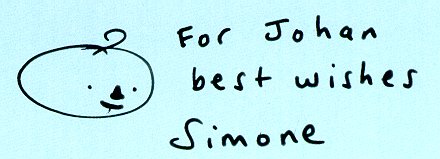 For Johan
best wishes
Simone